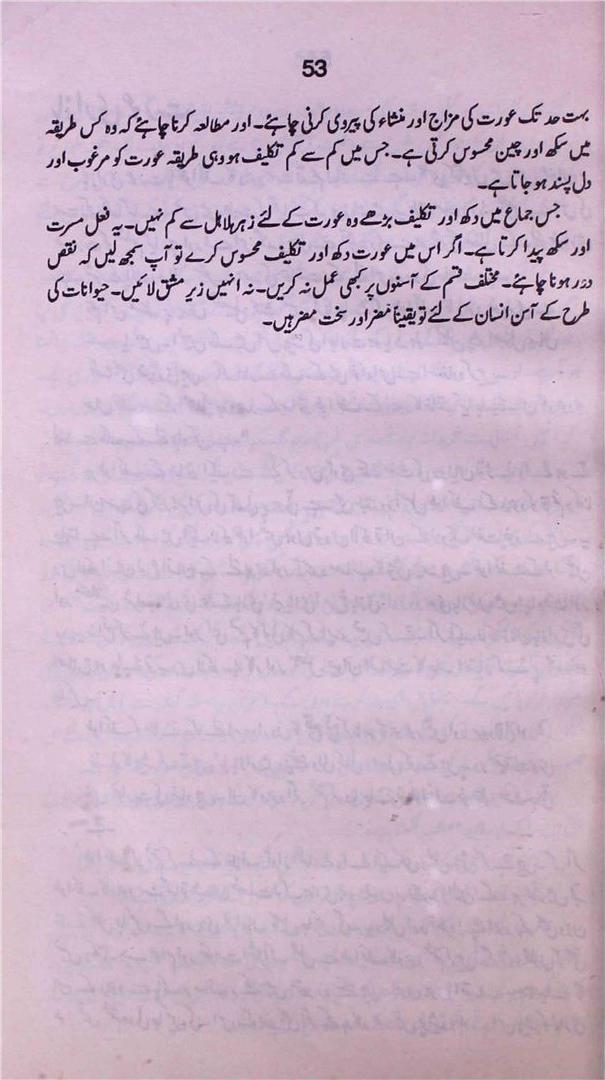 53
بہت حد تک عورت کی مزاج اور منشاء کی پیروی کرنی چاہئے۔ اور مطالعہ کرنا چاہئے کہ وہ کس طریقہ
میں سکھ اور چین محسوس کرتی ہے۔ جس میں کم سے کم تکلیف ہو وہی طریقہ عورت کو مرغوب اور
دل پسند ہو جاتا ہے۔
جس جماع میں دکھ اور تکلیف بڑھے وہ عورت کے لئے زہر ہلاہل سے کم نہیں۔ یہ فعل مسرت
اور سکھ پیدا کرتا ہے۔ اگر اس میں عورت دکھ اور تکلیف محسوس کرے تو آپ سمجھ لیں کہ نقص
دور ہونا چاہئے۔ مختلف قسم کے آسنوں پر کبھی عمل نہ کریں۔ نہ انہیں زیر مشق لائیں۔ حیوانات کی
طرح کے آسن انسان کے لئے تو یقیناً مضر اور سخت مضر ہیں۔